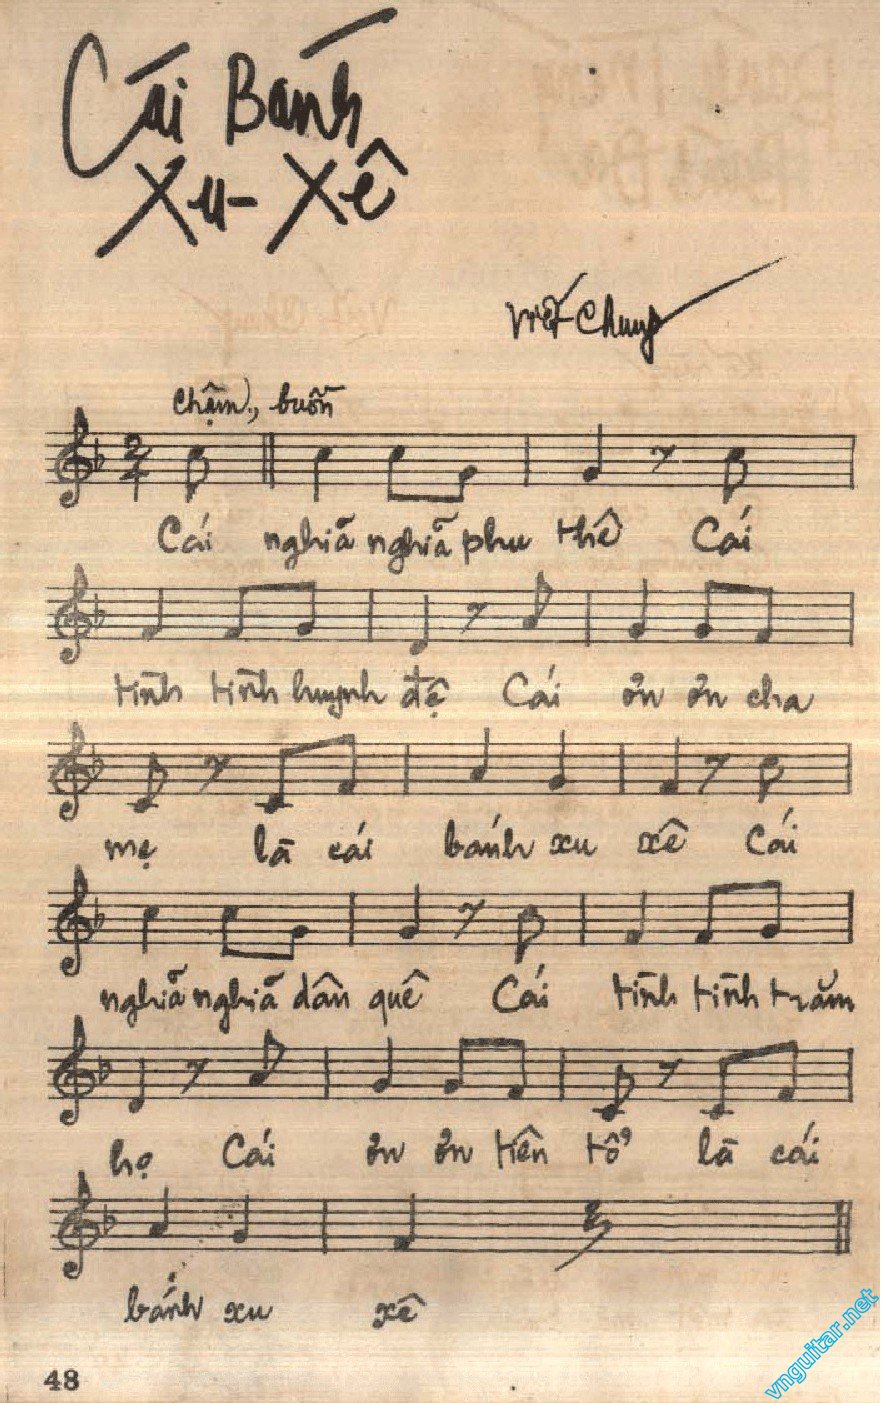 Cái Bánh
Xu-Xê
Việt Chung
chậm, buồn
Cái nghiã nghiã phu thê Cái
tình tình huynh đệ Cái ơn ơn cha
mẹ là cái bánh xu xê Cái
nghiã nghiã dân quê Cái tình tình trăm
họ Cái ơn ơn tiên tổ là cái
bánh xu xê
48
vnguitar.net